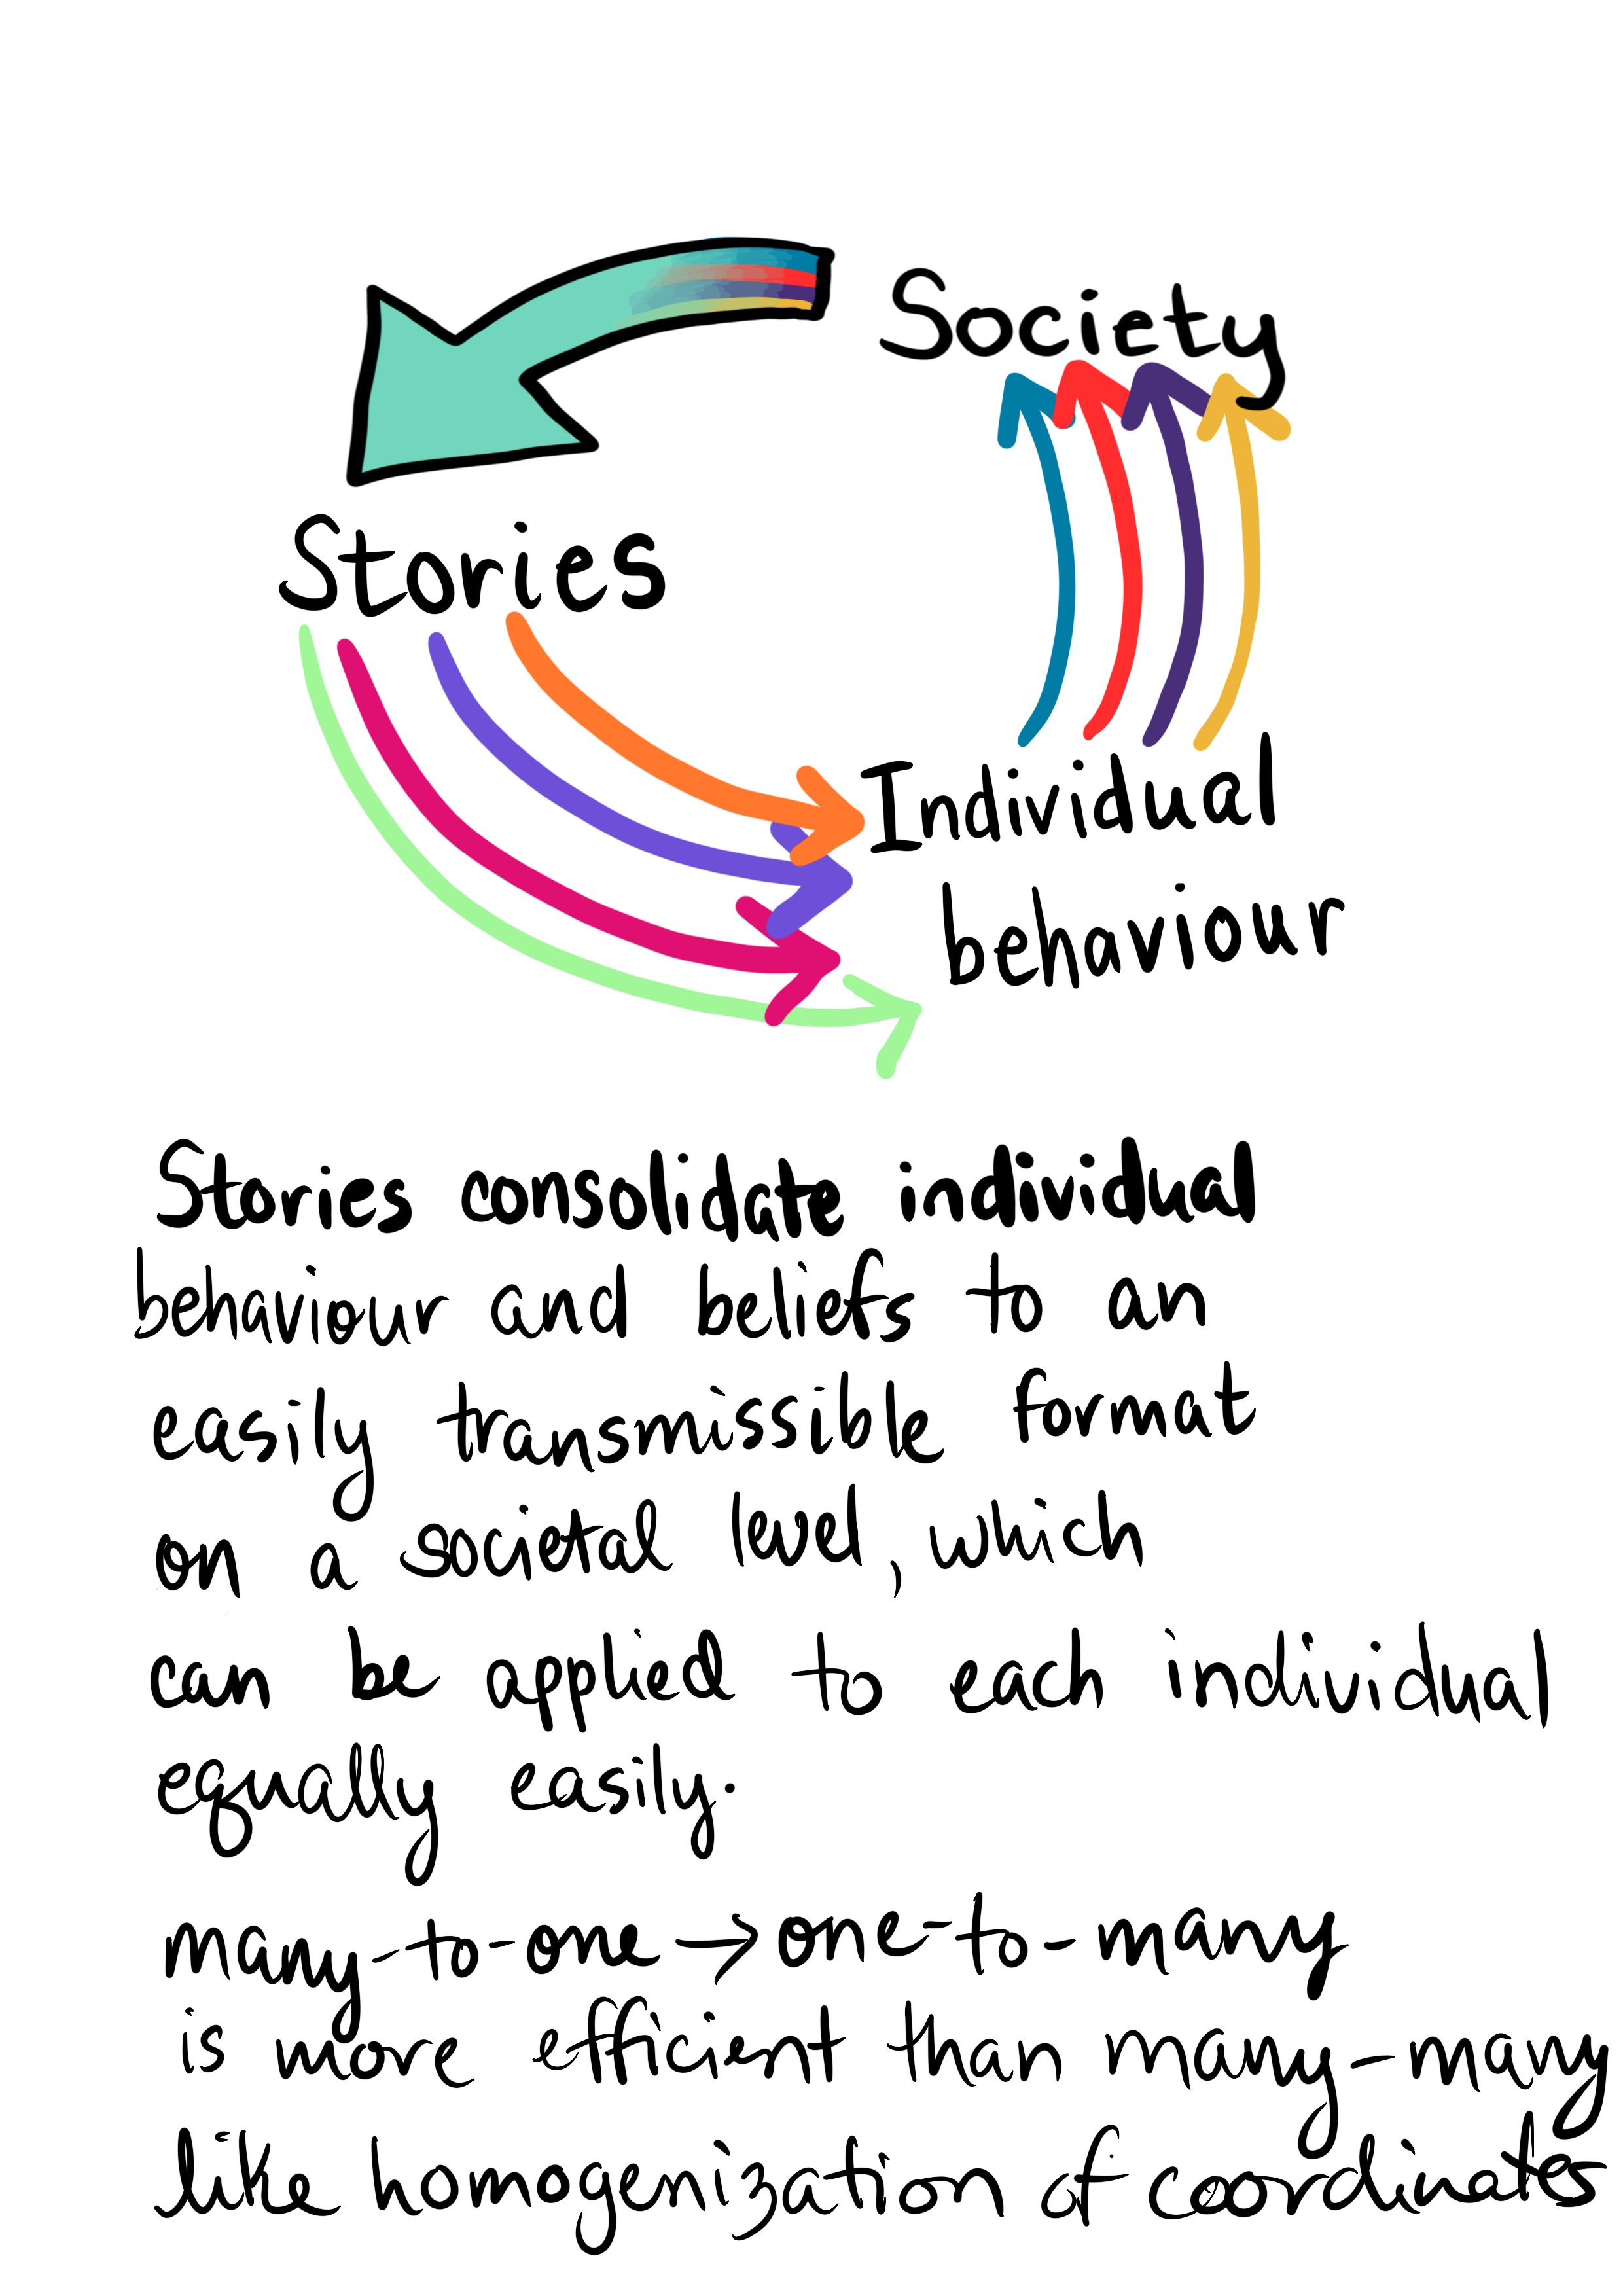 Society
Stories
Individual
behaviour
Stories consolidate individual
behaviour and beliefs to an
easily transmissible format
on a societal level, which
can be applied to each individual
equally easily.
many-to-one->one-to-many
is more efficient than many-many
like homogenization of coordinates